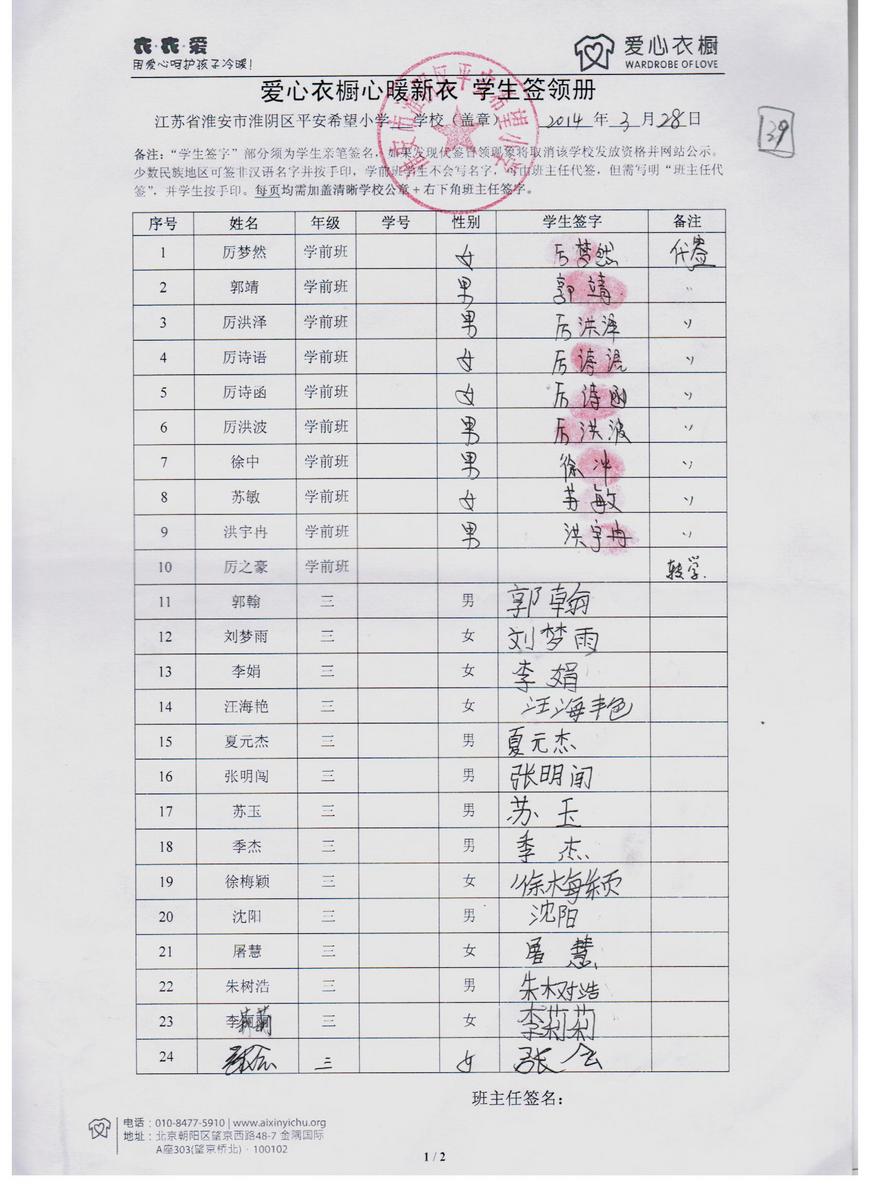 衣·衣·爱
用爱心呵护孩子冷暖!
爱心衣橱
WARDROBE OF LOVE
爱心衣橱心暖新衣 学生签领册
江苏省淮安市淮阴区平安希望小学 学校（盖章） 2014 年 3 月 28 日
139
备注：“学生签字”部分须为学生亲笔签名，如果发现代签冒领现象将取消该学校发放资格并网站公示。
少数民族地区可签非汉语名字并按手印，学前班学生不会写名字，可由班主任代签，但需写明“班主任代
签”，并学生按手印。每页均需加盖清晰学校公章+右下角班主任签字。
序号 姓名 年级 学号 性别 学生签字 备注
1 厉梦然 学前班 女 厉梦然 代签
2 郭靖 学前班 男 郭靖 〃
3 厉洪泽 学前班 男 厉洪泽 〃
4 厉诗语 学前班 女 厉诗语 〃
5 厉诗函 学前班 女 厉诗函 〃
6 厉洪波 学前班 男 厉洪波 〃
7 徐中 学前班 男 徐冲 〃
8 苏敏 学前班 女 苏敏 〃
9 洪宇冉 学前班 男 洪宇冉 〃
10 厉之豪 学前班 转学.
11 郭翰 三 男 郭翰
12 刘梦雨 三 女 刘梦雨
13 李娟 三 女 李娟
14 汪海艳 三 女 汪海艳
15 夏元杰 三 男 夏元杰
16 张明闯 三 男 张明闻
17 苏玉 三 男 苏玉
18 季杰 三 男 季杰
19 徐梅颖 三 女 徐梅颖
20 沈阳 三 男 沈阳
21 屠慧 三 女 屠慧
22 朱树浩 三 男 朱树浩
23 李莉莉 三 女 李莉莉
24 张会 三 女 张会
班主任签名：
电话：010-8477-5910 | www.aixinyichu.org
地址：北京朝阳区望京西路48-7 金隅国际
A座303(望京桥北)·100102
1 / 2